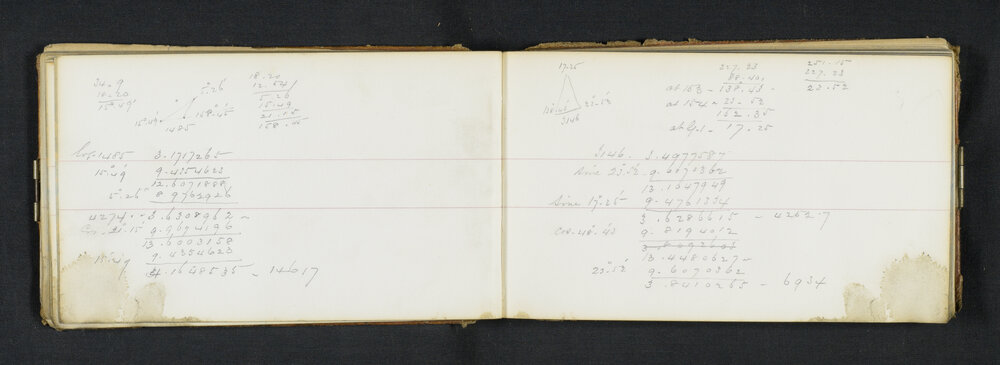 34.9
18.20
15.49
5.26
158.45
15.49
1485
18.20
12.54
5.26
15.49
21.15
158.45
Log. 1485 3.1717265
15.49 9.4354623
12.6071888
5.26 8.9762926
4274 3.6308962
Cos. 21.15 9.9694196
13.6003158
15.49 9.4354623
4.1648535 - 14617
17.25
23.52
3146
227.23
88.40
at 153 - 138.43
at 154 - 23.52
162.35
17.25
251.15
227.23
23.52
3146. 3.4977587
Sine 23.52 9.6070362
13.1047949
Sine 17.25 9.4761334
3.6286615 - 4252.7
Cos. 48.43 9.8194012
13.4480627
23.52 9.6070362
3.8410265 - 6934